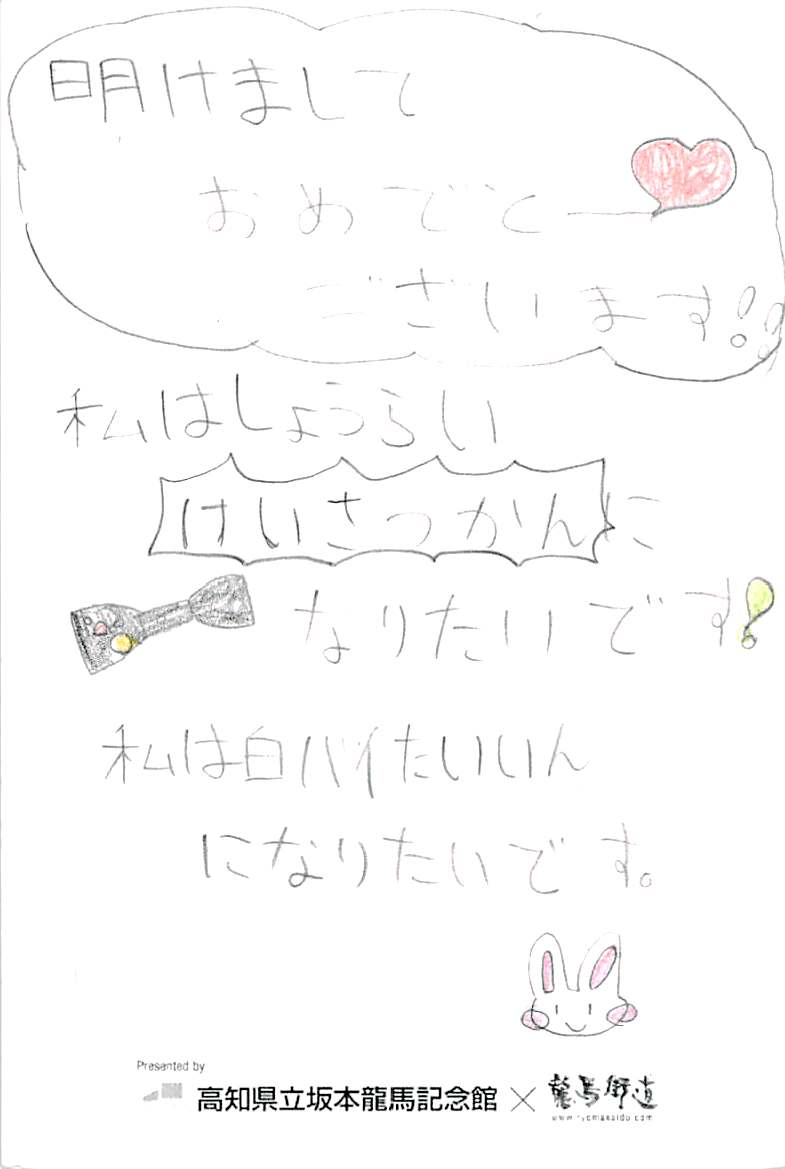 明けまして
おめでとー
ございます!!
私はしょうらい
けいさつかんに
なりたいです!
私は白バイたいいん
になりたいです。
Presented by
高知県立坂本龍馬記念館×龍馬街道
www.ryomakaido.com